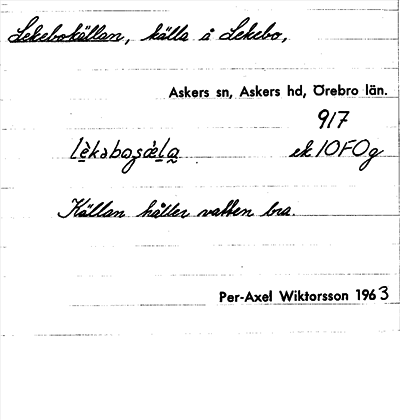 Lekebokällan, källa å Lekebo,
Askers sn, Askers hd, Örebro län.
917
ek 10F0g
Källan håller vatten bra.
Per-Axel Wiktorsson 1963